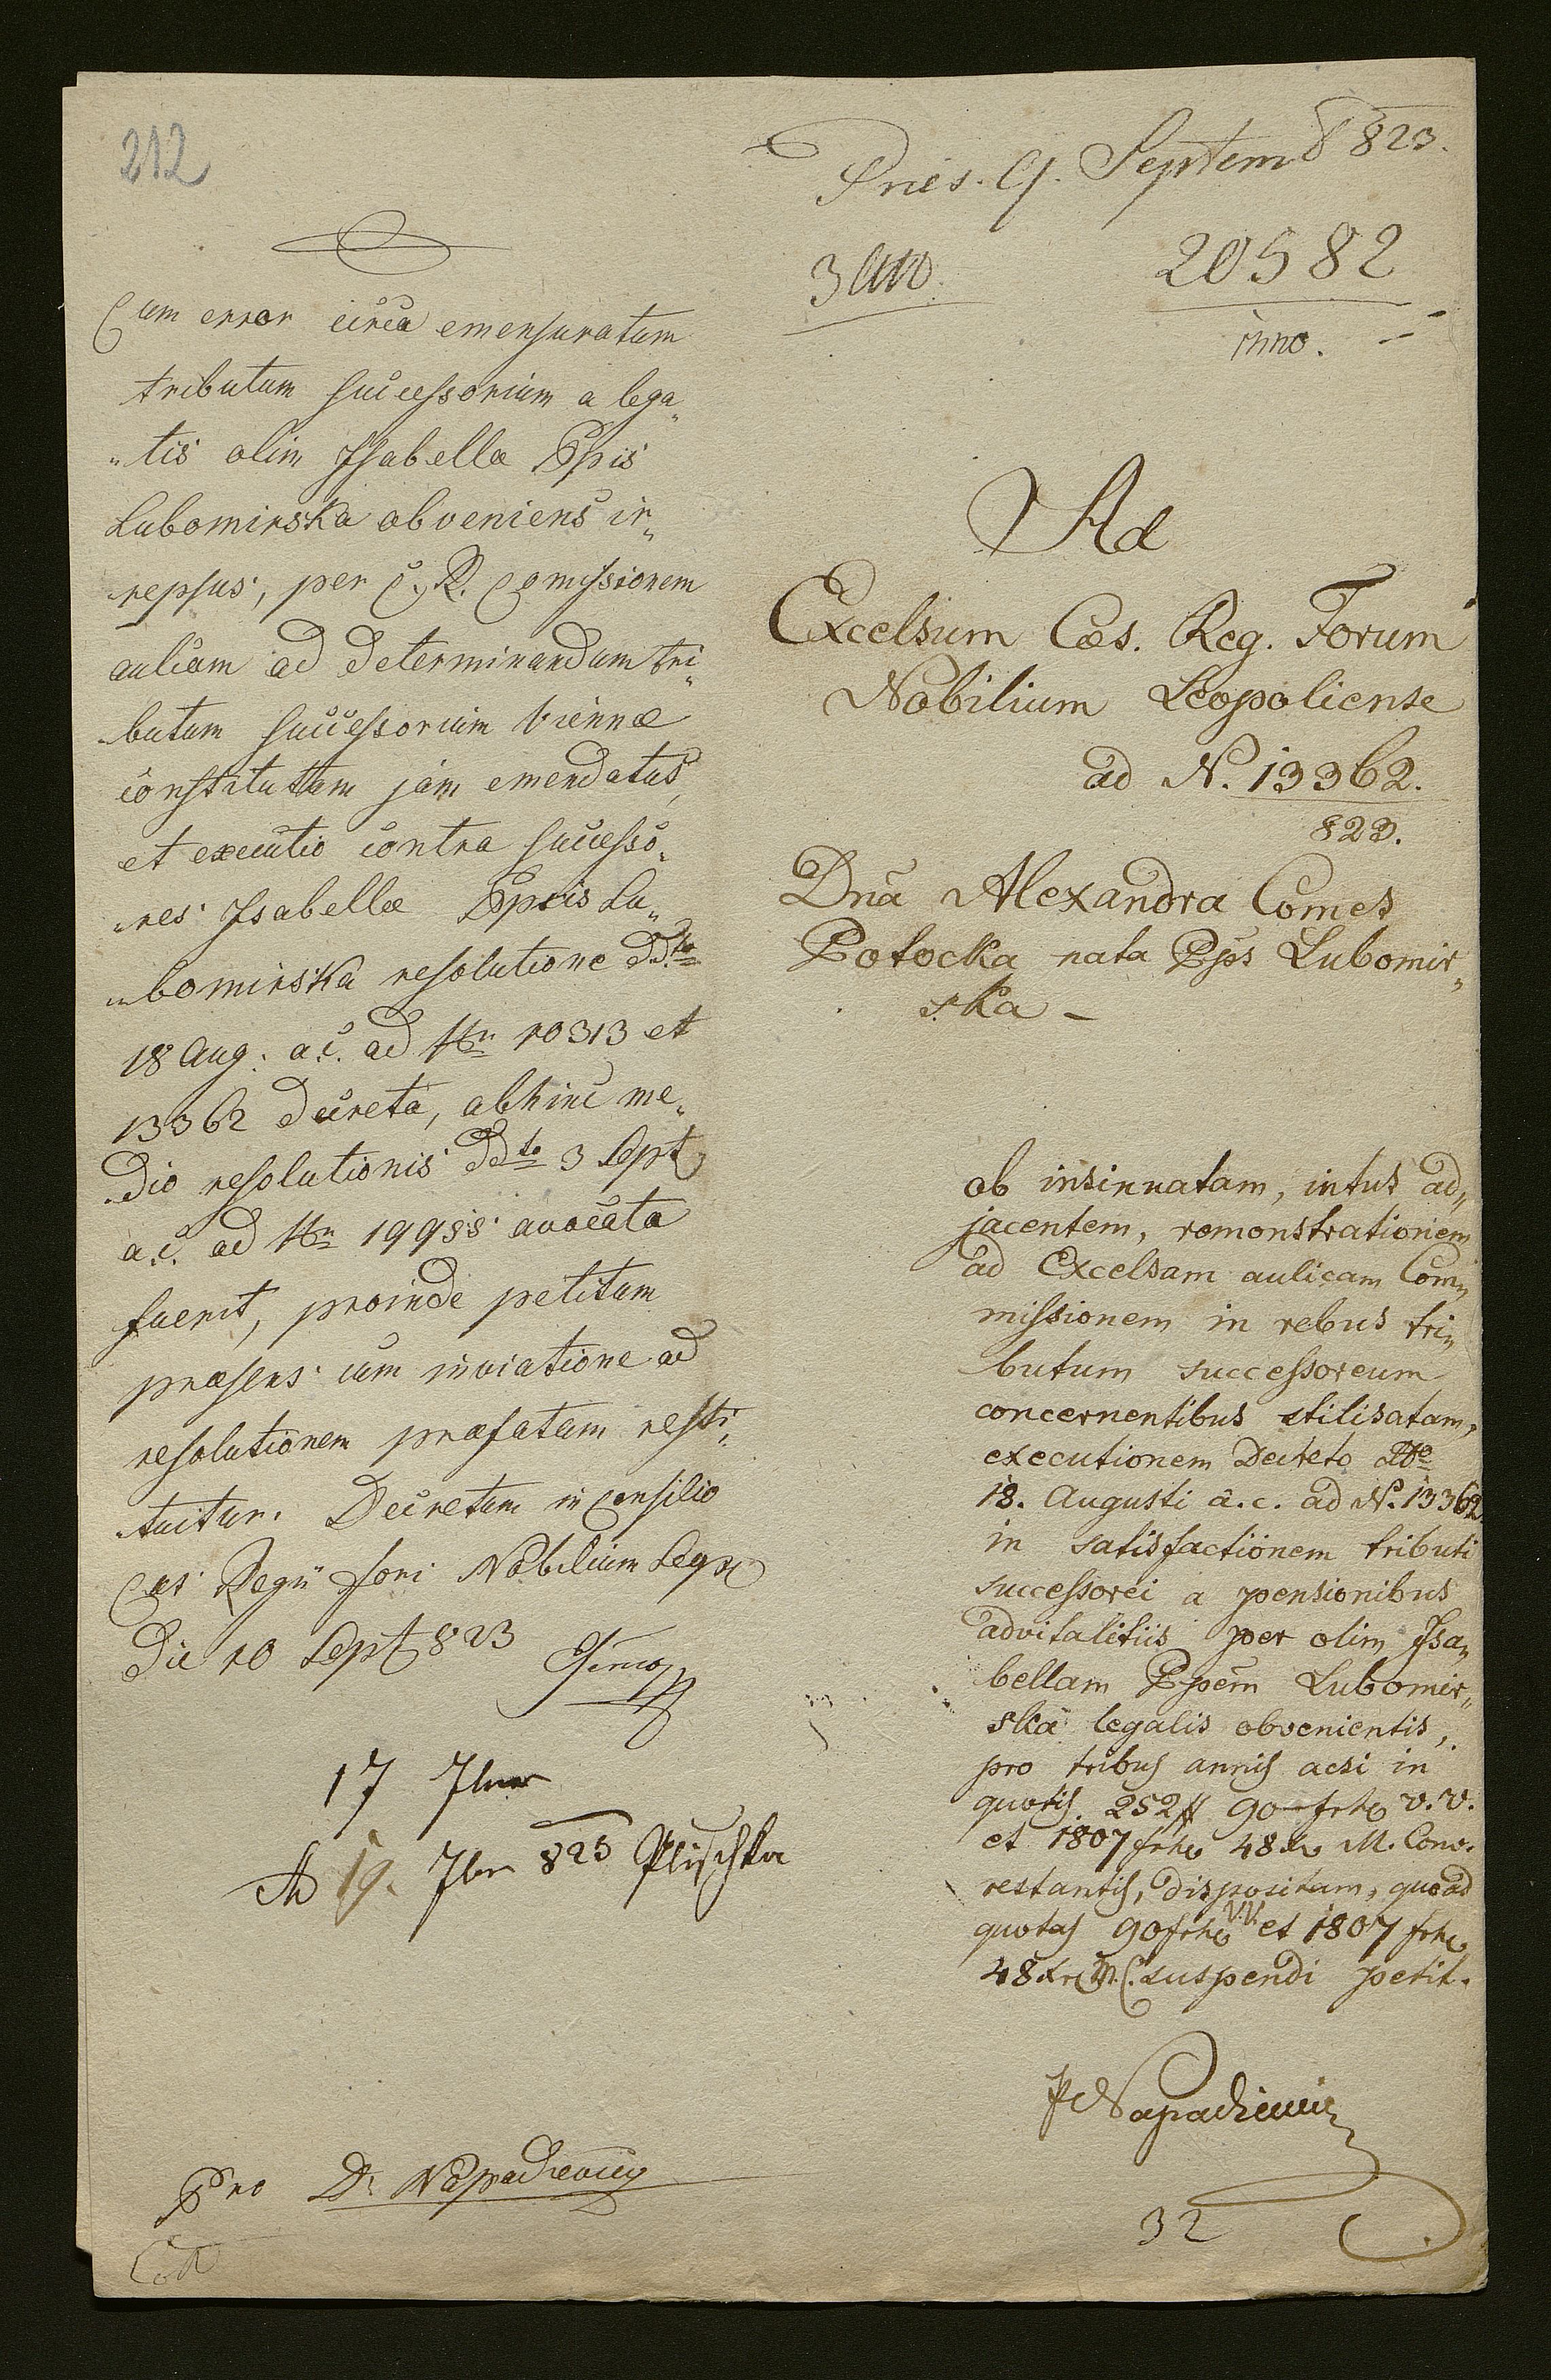 212
Cum error circa emensuratum
tributum successorium a lega„
„tis olim Isabellæ Ppis
Lubomirska obveniens ir„
repsus, per C. R. Comissionem
aulicam ad determinandum tri„
butum successorium Viennæ
constitutam jam emendatus,
et executio contra successo„
res Isabellæ Ppis Lu„
„bomirska resolutione ddto
18 Aug: a. c. ad Nr 10313 et
13362 decreta, abhinc me„
dio resolutionis ddto 3 Sept
a. c. ad Nr 19955 avocata
fuerit, proinde petitum
præsens cum inviatione ad
resolutionem præfatam resti„
tuitur. Decretum in Consilio
Cæs Regii fori Nobilium Leop
die 10 Sept 823
17 7br
19. 7br 823 Plischka
Pro Dr Napadiewicz
Præs. 9. Septem 823.
20582
Ad
Excelsum Cæs. Reg. Forum
Nobilium Leopoliense
ad N. 13362.
823.
Dnā Alexandra Comes
Potocka nata Pps Lubomir„
ska –
ob insinuatam, intus ad„
jacentem, remonstrationem
ad Excelsam aulicam Com„
missionem in rebus tri„
butum successoreum
concernentibus stilisatam,
executionem Decreto ddto
18. Augusti a. c. ad N. 13362
in satisfactionem tributi
successorei a pensionibus
advitalitiis per olim Isa„
bellam Ppēm Lubomir„
ska legatis obvenientis,
pro tribus annis acsi in
quotis 252 # 90 frh v. v.
et 1807 frh 48 xr M. Conv.
restantis, dispositam, quoad
quotas 90 frh V. V. et 1807 frh
48 xr M. C. suspendi petit.
Napadiewicz
32